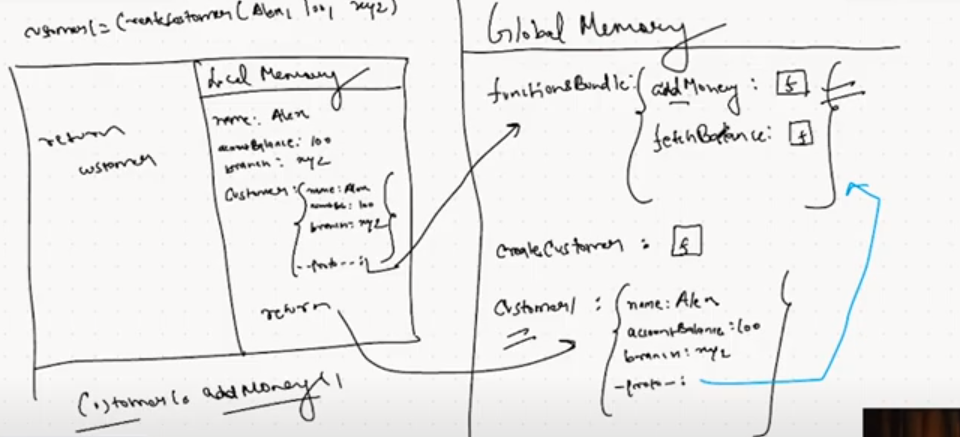 customer1 = createCustomer(Alex, 100, xyz)
Local Memory
name: Alex
accountBalance: 100
branch: xyz
Customer: { name: Alex
: 100
branch: xyz
--proto--:
return
return
customer
Customer1. addMoney()
Global Memory
functionsBundle: { addMoney: f
fetchBalance: f
createCustomer : f
Customer1 : { name: Alex
accountBalance: 100
branch: xyz
--proto--: